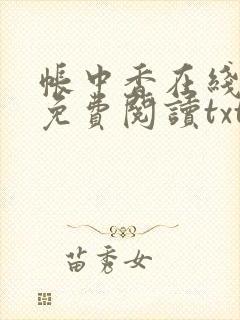 帳中香在綫
免費閱讀txt
苗秀女